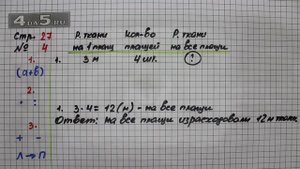 4 5.ru
Стр. 27
№ 4
Р. ткани кол-во Р. ткани
на 1 плащ плащей на все плащи
1. 1. 3 м 4 шт. ?
(а+в)
2.
· :
1. 3·4=12(м) - на все плащи.
Ответ: на все плащи израсходовали 12 м ткани.
3.
+ -
Л→П